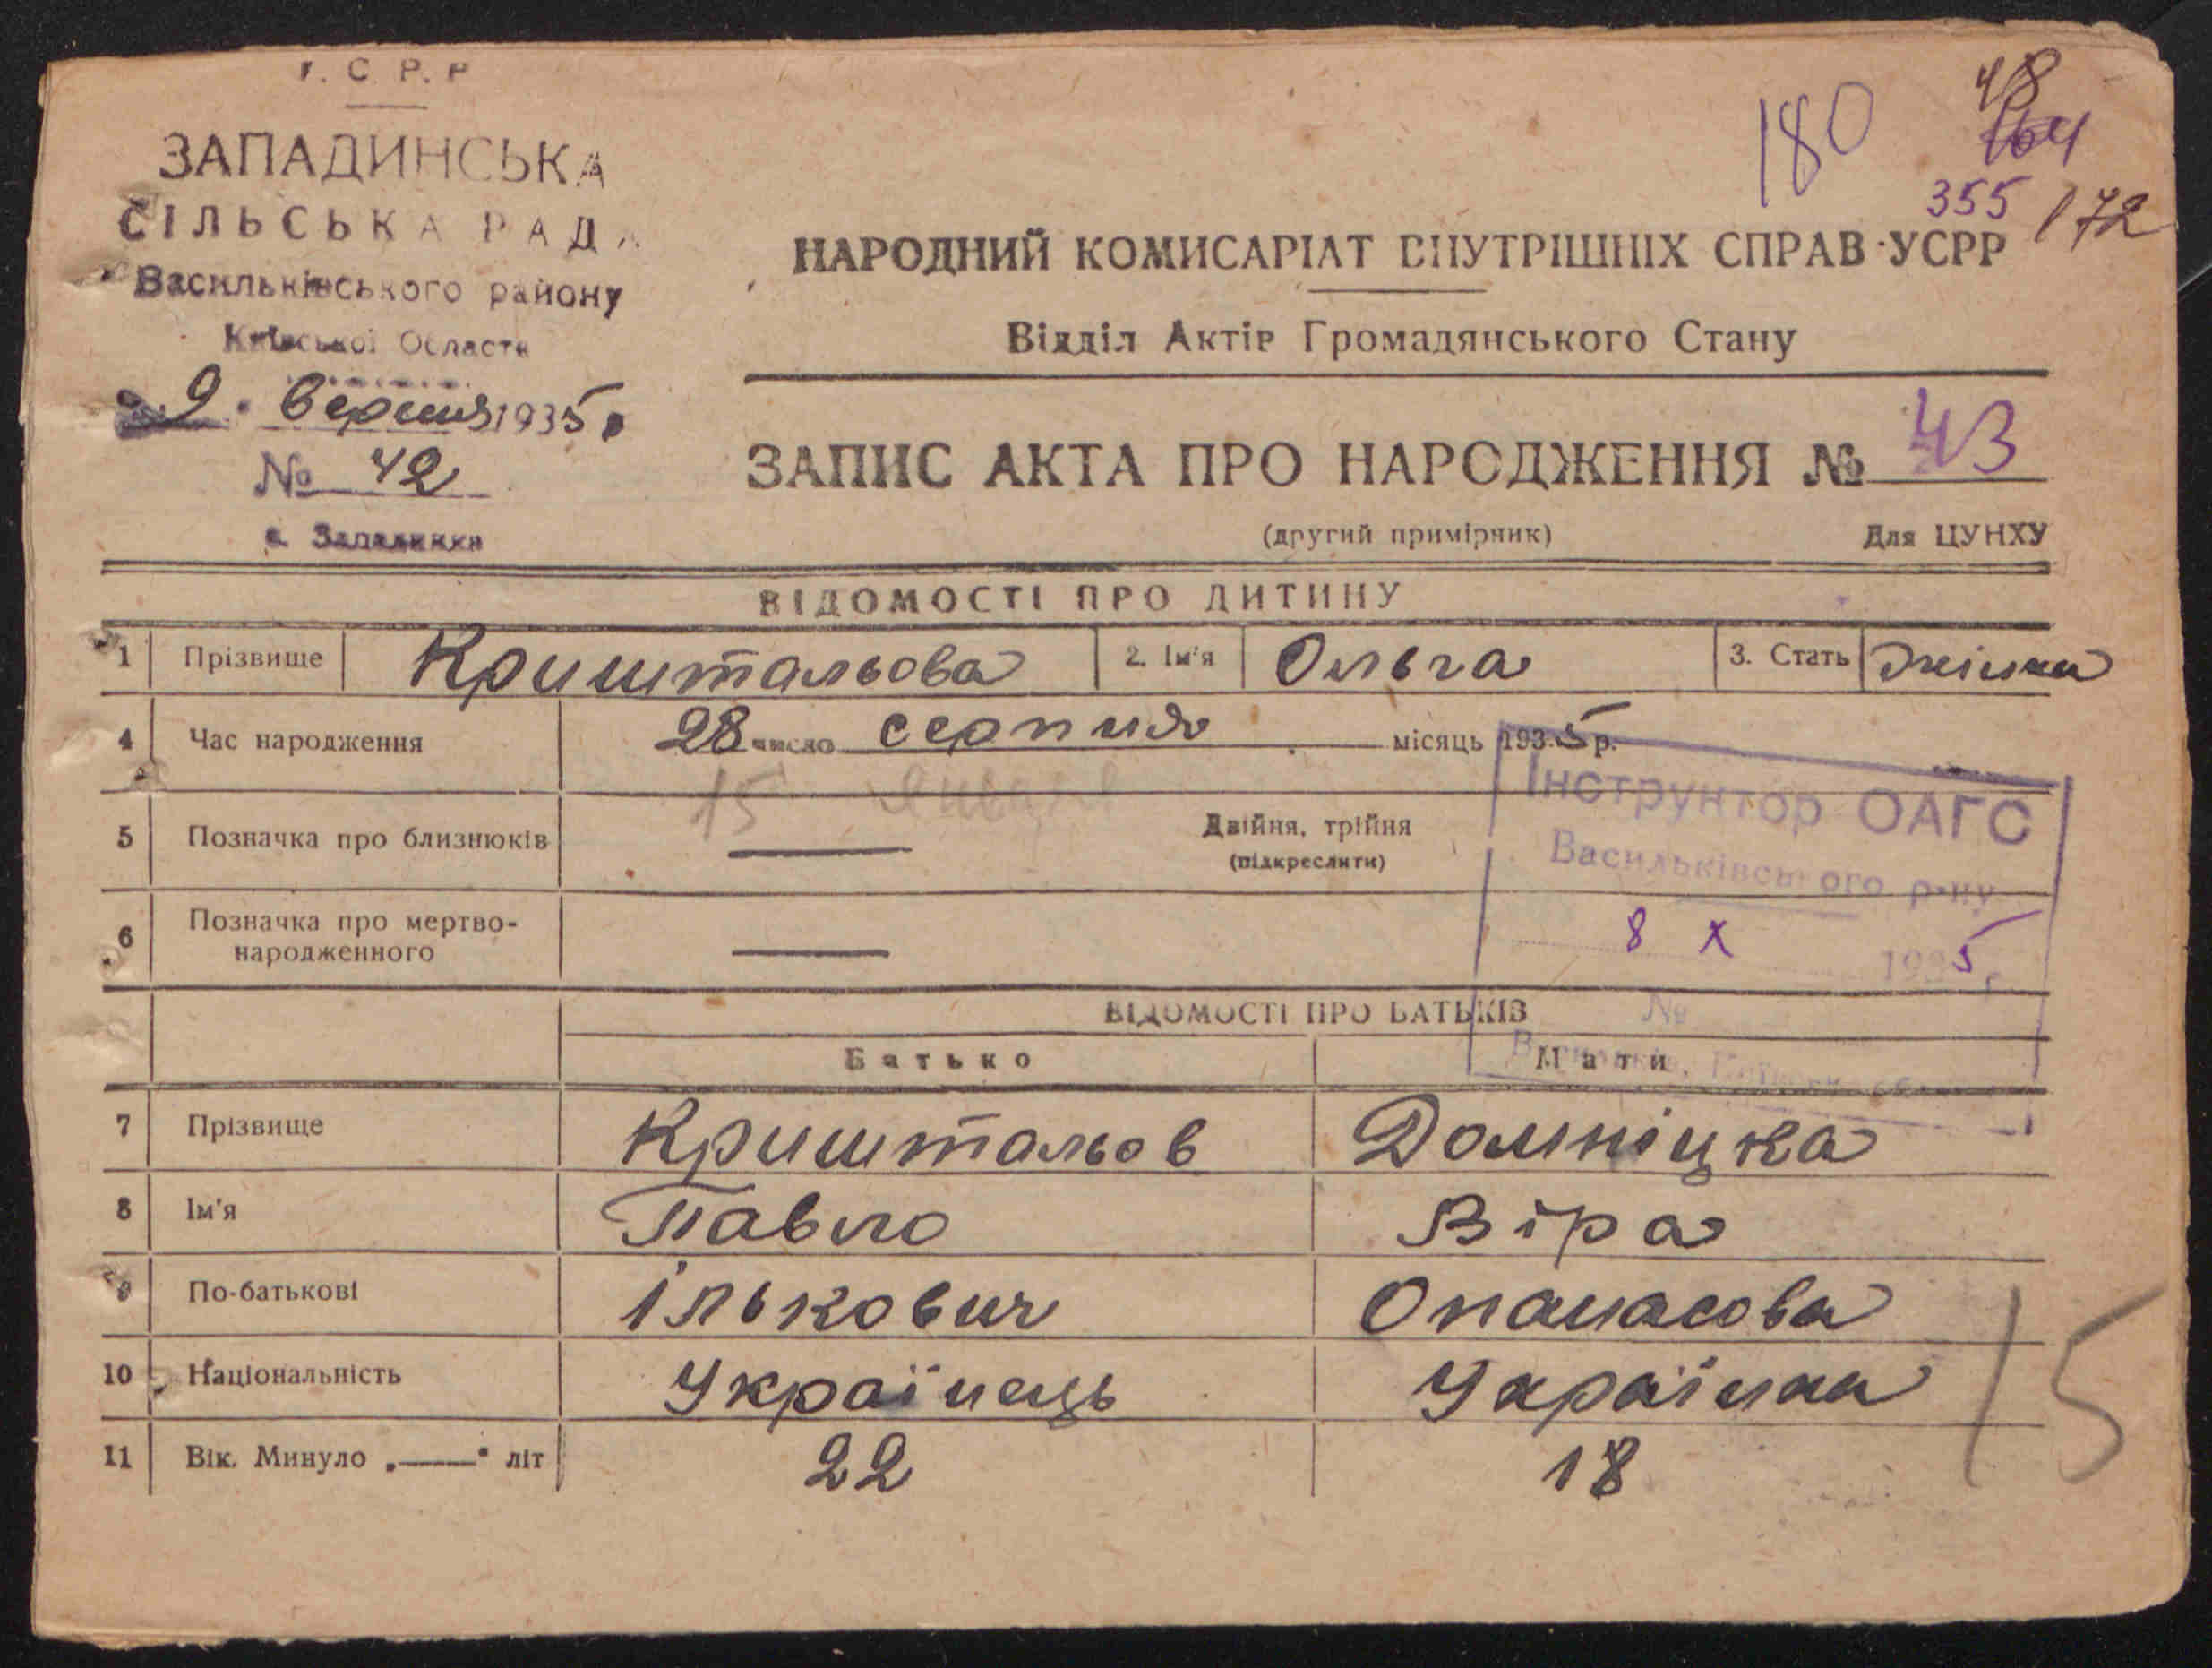 У. С. Р. Р
ЗАПАДИНСЬКА
СІЛЬСЬКА РАДА
Васильківського району
Київської Области
9. вересня 1935 р
№ 42
с. Западинка
180
48
164
355
172
НАРОДНИЙ КОМИСАРІАТ ВНУТРІШНІХ СПРАВ УСРР
Відділ Актів Громадянського Стану
ЗАПИС АКТА ПРО НАРОДЖЕННЯ № 43
(другий примірник) Для ЦУНХУ
ВІДОМОСТІ ПРО ДИТИНУ
1 Прізвище Криштальова 2. Ім'я Ольга 3. Стать жіноча
4 Час народження 28 число серпня місяць 1935 р.
15 января
5 Позначка про близнюків — Двійня, трійня
(підкреслити)
6 Позначка про мертво-
народженного —
Інструктор ОАГС
Васильківського р-ну
8 X 1935 г
№
ВІДОМОСТІ ПРО БАТЬКІВ
Батько Мати
7 Прізвище Криштальов Домніцка
8 Ім'я Павло Віра
9 По-батькові Ількович Опанасова
10 Національність Українець Українка
11 Вік. Минуло „——" літ 22 18
15